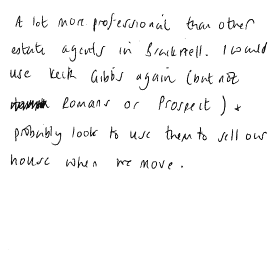 A lot more professional than other
estate agents in Bracknell. I would
use Keith Gibbs again (but not
Romans or Prospect) +
probably look to use them to sell our
house when we move.